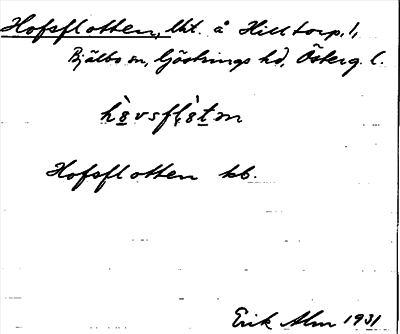 Hofsflotten, lht. å Hilltorp, 1,
Bjälbo sn, Göstrings hd, Österg. l.
Hofsflotten kb.
Erik Alm 1931